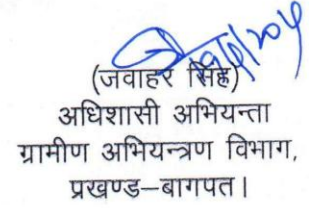 (जवाहर सिंह)
अधिशासी अभियन्ता
ग्रामीण अभियन्त्रण विभाग,
प्रखण्ड–बागपत।